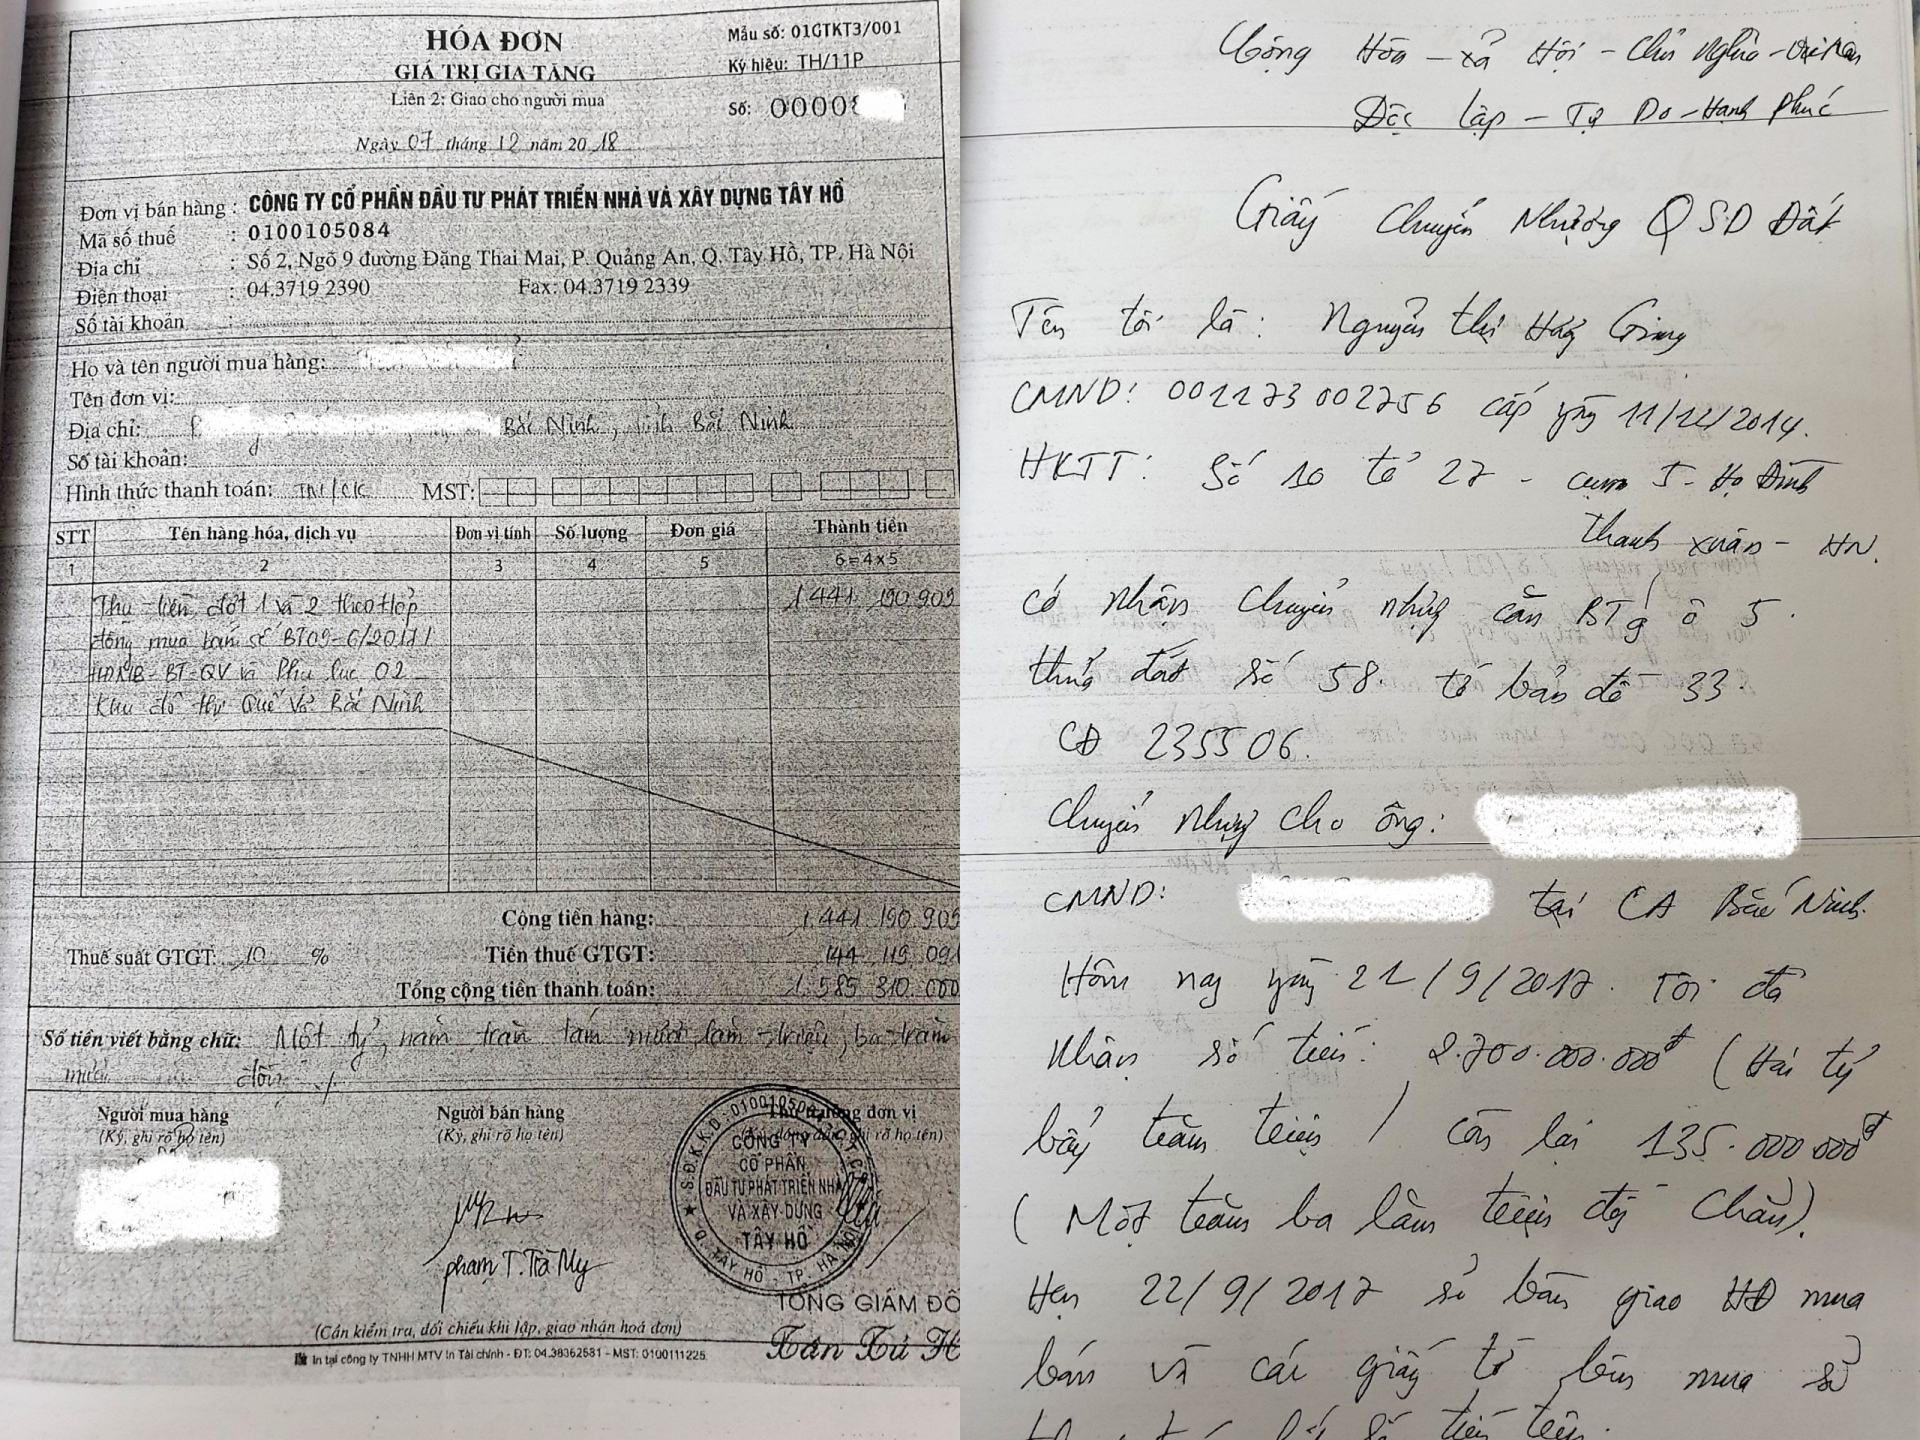 HÓA ĐƠN
GIÁ TRỊ GIA TĂNG
Liên 2: Giao cho người mua
Ngày 07 tháng 12 năm 2018
Mẫu số: 01GTKT3/001
Ký hiệu: TH/11P
Số: 00008
Đơn vị bán hàng : CÔNG TY CỔ PHẦN ĐẦU TƯ PHÁT TRIỂN NHÀ VÀ XÂY DỰNG TÂY HỒ
Mã số thuế : 0100105084
Địa chỉ : Số 2, Ngõ 9 đường Đặng Thai Mai, P. Quảng An, Q. Tây Hồ, TP. Hà Nội
Điện thoại : 04.3719 2390 Fax: 04.3719 2339
Số tài khoản :
Họ và tên người mua hàng:
Tên đơn vị:
Địa chỉ: Bắc Ninh, tỉnh Bắc Ninh
Số tài khoản:
Hình thức thanh toán: TM/CK MST:
STT Tên hàng hóa, dịch vụ Đơn vị tính Số lượng Đơn giá Thành tiền
1 2 3 4 5 6=4x5
Thu tiền đợt 1 và 2 theo Hợp 1 441 190 909
đồng mua bán số BT09-6/2011/
HĐMB-BT-QV và Phụ lục 02
Khu đô thị Quế Võ Bắc Ninh
Cộng tiền hàng: 1 441 190 909
Thuế suất GTGT: 10 % Tiền thuế GTGT: 144 119 091
Tổng cộng tiền thanh toán: 1 585 310 000
Số tiền viết bằng chữ: Một tỷ, năm trăm tám mươi lăm triệu, ba trăm
mười đồng ./.
Người mua hàng Người bán hàng Thủ trưởng đơn vị
(Ký, ghi rõ họ tên) (Ký, ghi rõ họ tên) ghi rõ họ tên)
S.Đ.K.K.D: 0100105084
CÔNG TY
CỔ PHẦN
ĐẦU TƯ PHÁT TRIỂN NHÀ
VÀ XÂY DỰNG
TÂY HỒ
Q. TÂY HỒ - TP. HÀ NỘI
Phạm T. Trà My
TỔNG GIÁM ĐỐ
(Cần kiểm tra, đối chiếu khi lập, giao nhận hoá đơn)
In tại công ty TNHH MTV In Tài chính - ĐT: 04.38362581 - MST: 0100111225
Cộng Hòa - xã Hội - Chủ Nghĩa - Việt Nam
Độc lập - Tự Do - Hạnh Phúc
Giấy Chuyển Nhượng QSD Đất
Tên tôi là: Nguyễn Thị Giang
CMND: 001173002756 cấp ngày 11/12/2014.
HKTT: Số 10 tổ 27 - cụm 5 - Hạ Đình
Thanh xuân - HN.
có nhận chuyển nhượng căn BT9 ô 5.
thửa đất số 58. tờ bản đồ 33.
CĐ 235506.
Chuyển nhượng cho ông:
CMND: tại CA Bắc Ninh.
Hôm nay ngày 21/9/2017. Tôi đã
Nhận số tiền: 2.700.000.000đ (Hai tỷ
bảy trăm triệu) còn lại 135.000.000đ
(Một trăm ba lăm triệu đ Chẵn).
Hẹn 22/9/2017 sẽ bàn giao HĐ mua
bán và các giấy tờ bên mua sẽ